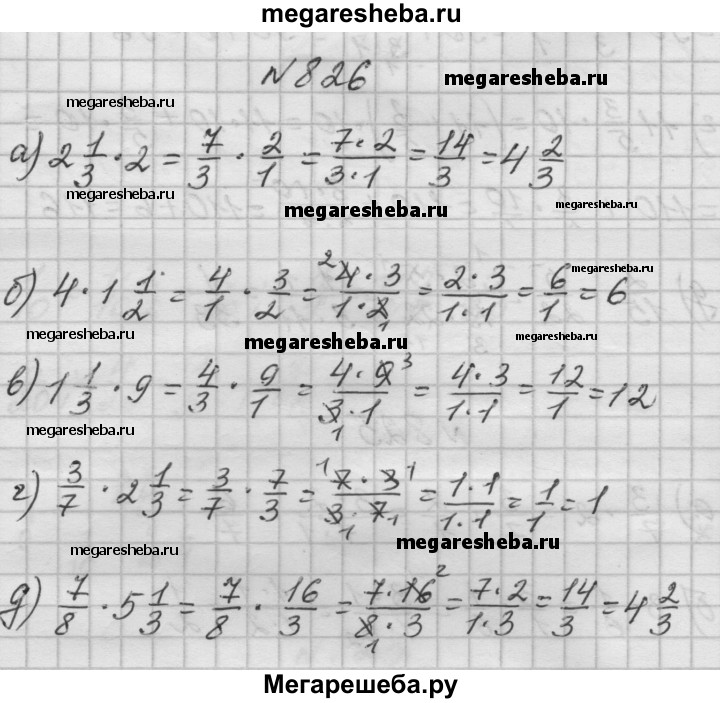 megaresheba.ru
N 826
megaresheba.ru
megaresheba.ru
а) 2 1/3 · 2 = 7/3 · 2/1 = 7·2/3·1 = 14/3 = 4 2/3
megaresheba.ru
megaresheba.ru
megaresheba.ru
megaresheba.ru
б) 4 · 1 1/2 = 4/1 · 3/2 = ²4·3/1·2₁ = 2·3/1·1 = 6/1 = 6
megaresheba.ru
megaresheba.ru
megaresheba.ru
в) 1 1/3 · 9 = 4/3 · 9/1 = 4·9³/3₁·1 = 4·3/1·1 = 12/1 = 12
megaresheba.ru
г) 3/7 · 2 1/3 = 3/7 · 7/3 = ¹7·3¹/3₁·7₁ = 1·1/1·1 = 1/1 = 1
megaresheba.ru
megaresheba.ru
д) 7/8 · 5 1/3 = 7/8 · 16/3 = 7·16²/8₁·3 = 7·2/1·3 = 14/3 = 4 2/3
Мегарешеба.ру